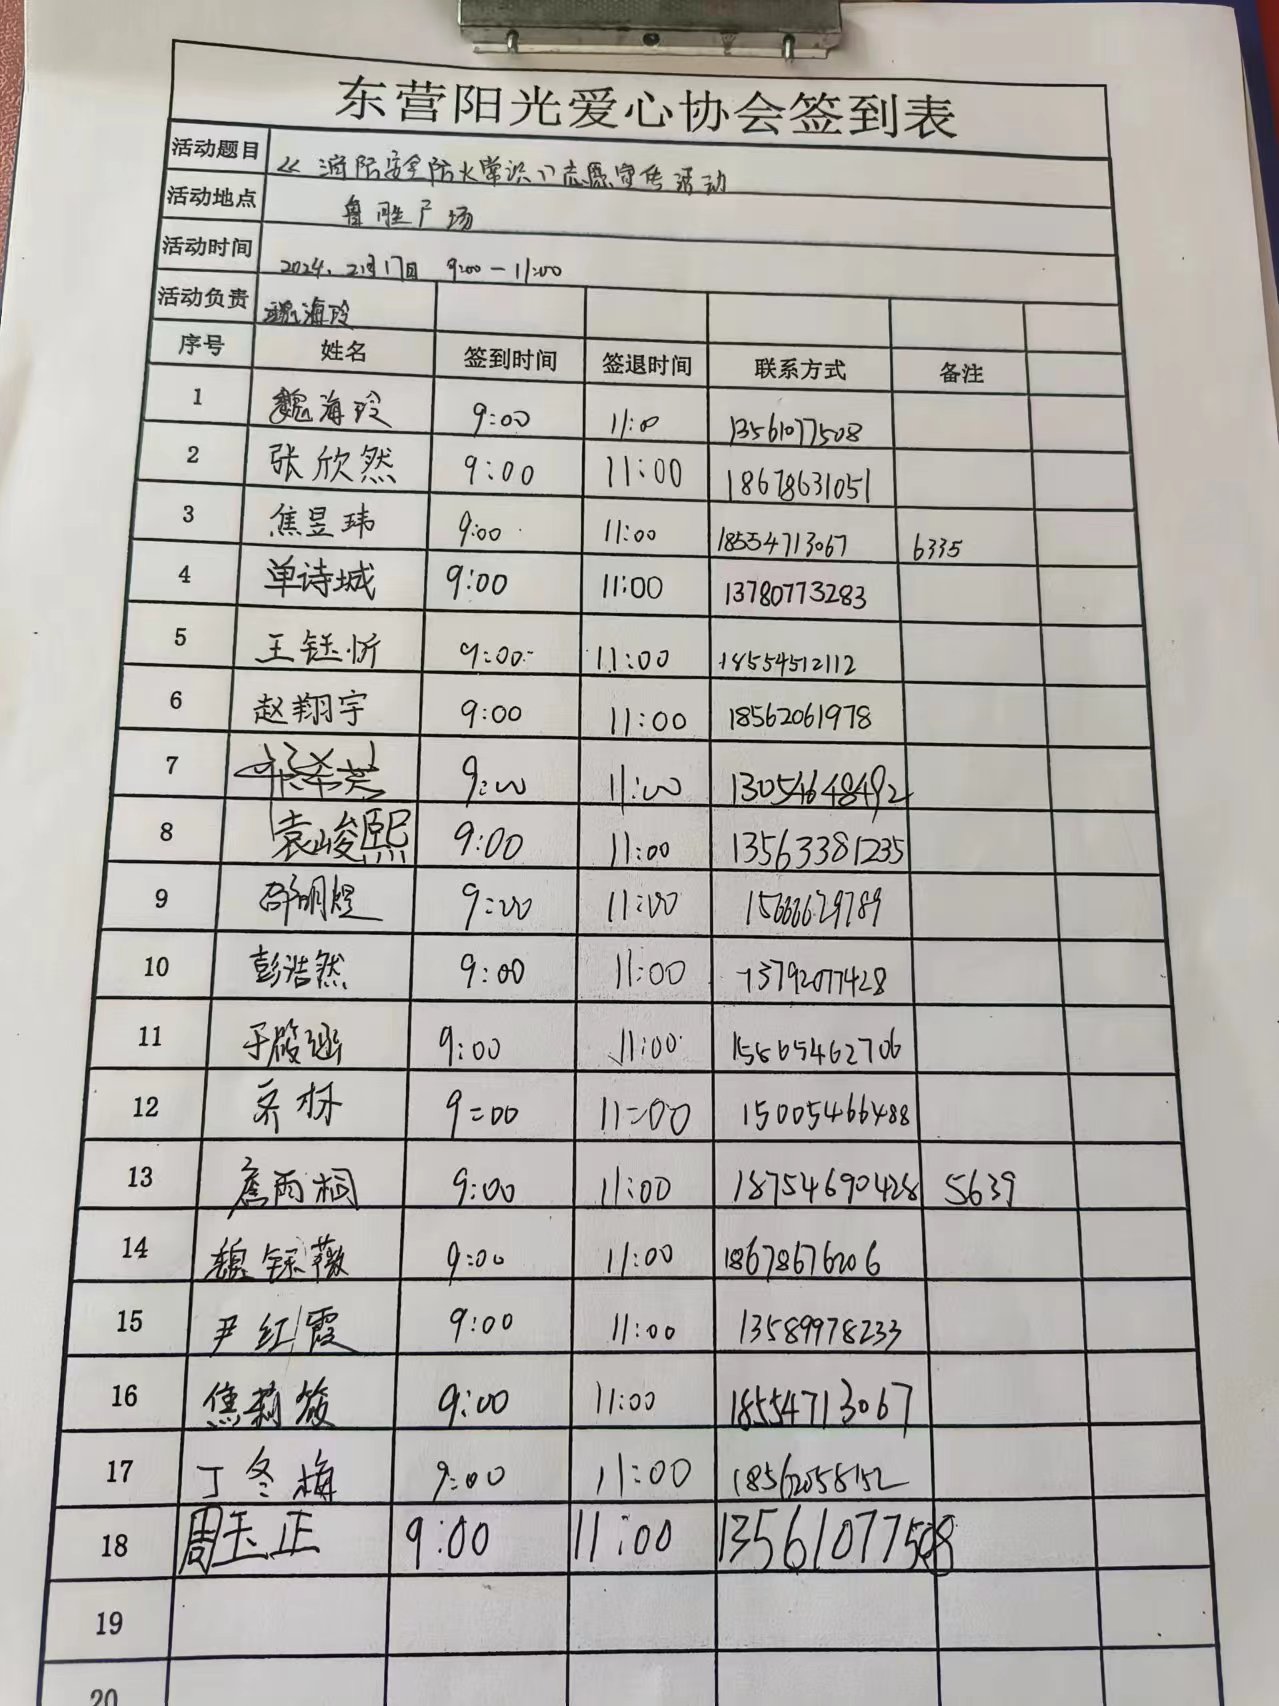 东营阳光爱心协会签到表
活动题目 《消防安全防火常识》志愿宣传活动
活动地点 鲁胜广场
活动时间 2024.2月17日 9:00-11:00
活动负责 魏海玲
序号 姓名 签到时间 签退时间 联系方式 备注
1 魏海玲 9:00 11:00 13561077508
2 张欣然 9:00 11:00 18678631051
3 焦昱玮 9:00 11:00 18554713067 6335
4 单诗城 9:00 11:00 13780773283
5 王钰忻 9:00 11:00 18554512112
6 赵翔宇 9:00 11:00 18562061978
7 9:00 11:00 13054648492
8 袁峻熙 9:00 11:00 13563381235
9 邵明煜 9:00 11:00 15666629789
10 彭浩然 9:00 11:00 13792077428
11 9:00 11:00 15865462706
12 齐林 9:00 11:00 15005466488
13 雨桐 9:00 11:00 18754690428 5639
14 魏钰薇 9:00 11:00 18678676206
15 尹红霞 9:00 11:00 13589978233
16 焦莉筱 9:00 11:00 18554713067
17 丁冬梅 9:00 11:00 18562058152
18 周玉正 9:00 11:00 13561077508
19
20